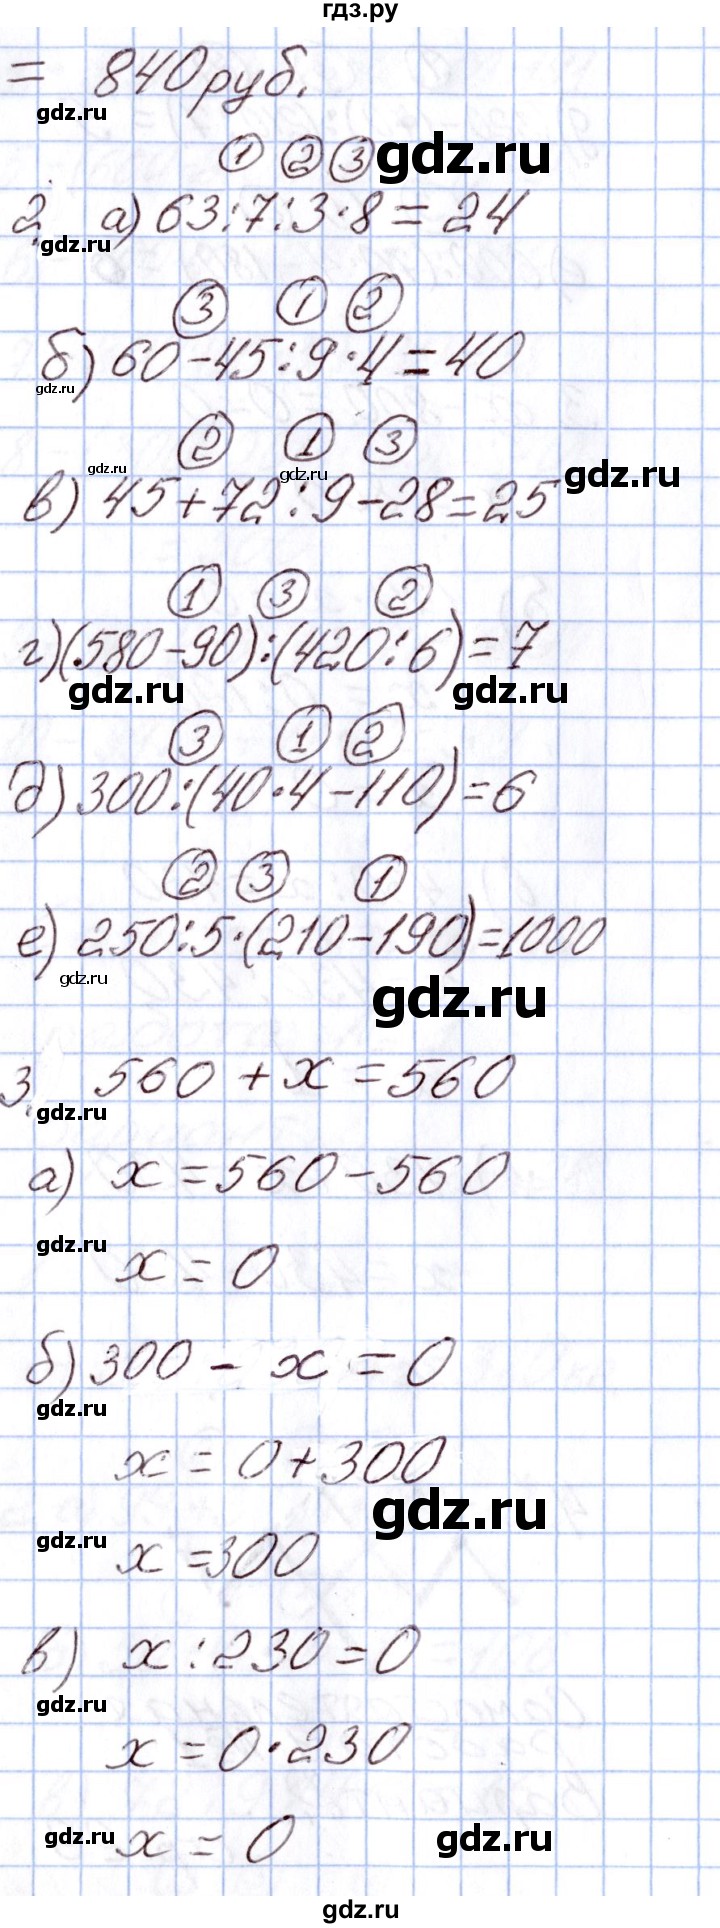 гдз.ру
= 840 руб.
gdz.ru
① ② ③ gdz.ru
2. а) 63:7:3·8=24
gdz.ru
③ ① ②
б) 60-45:9·4=40
gdz.ru
② ① ③
gdz.ru gdz.ru gdz.ru
в) 45+72:9-28=25
① ③ ②
г) (580-90):(420:6)=7
gdz.ru gdz.ru
③ ① ②
д) 300:(40·4-110)=6
② ③ ①
е) 250:5·(210-190)=1000
gdz.ru gdz.ru
3. 560+x=560
gdz.ru
а) x=560-560
gdz.ru
x=0
б) 300-x=0
gdz.ru
x=0+300
gdz.ru
gdz.ru
x=300
в) x:230=0
gdz.ru
x=0·230
gdz.ru x=0 gdz.ru
gdz.ru